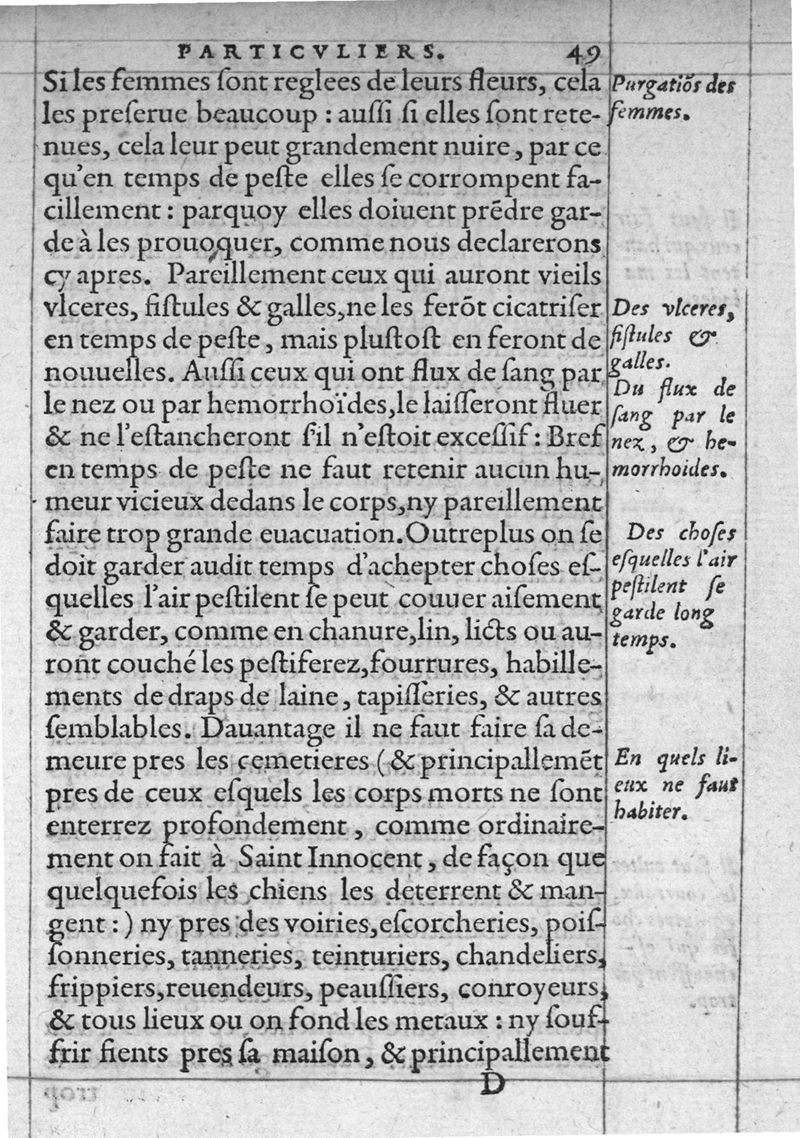 PARTICVLIERS. 49
Si les femmes ſont reglees de leurs fleurs, cela
les preſerue beaucoup : auſſi ſi elles ſont rete-
nues, cela leur peut grandement nuire, par ce
qu'en temps de peſte elles ſe corrompent fa-
cillement : parquoy elles doiuent prẽdre gar-
de à les prouoquer, comme nous declarerons
cy apres. Pareillement ceux qui auront vieils
vlceres, fiſtules & galles, ne les ferõt cicatriſer
en temps de peſte, mais pluſtoſt en feront de
nouuelles. Auſſi ceux qui ont flux de ſang par
le nez ou par hemorrhoïdes, le laiſſeront fluer
& ne l'eſtancheront ſ'il n'eſtoit exceſſif : Bref
en temps de peſte ne faut retenir aucun hu-
meur vicieux dedans le corps, ny pareillement
faire trop grande euacuation. Outreplus on ſe
doit garder audit temps d'achepter choſes eſ-
quelles l'air peſtilent ſe peut couuer aiſement
& garder, comme en chanure, lin, licts ou au-
ront couché les peſtiferez, fourrures, habille-
ments de draps de laine, tapiſſeries, & autres
ſemblables. Dauantage il ne faut faire ſa de-
meure pres les cemetieres ( & principallemẽt
pres de ceux eſquels les corps morts ne ſont
enterrez profondement, comme ordinaire-
ment on fait à Saint Innocent, de façon que
quelquefois les chiens les deterrent & man-
gent : ) ny pres des voiries, eſcorcheries, poiſ-
ſonneries, tanneries, teinturiers, chandeliers,
frippiers, reuendeurs, peauſſiers, conroyeurs,
& tous lieux ou on fond les metaux : ny ſouf-
frir fients pres ſa maiſon, & principallement
D
Purgatiõs des
femmes.
Des vlceres,
fiſtules &
galles.
Du flux de
ſang par le
nez, & he-
morrhoides.
Des choſes
eſquelles l'air
peſtilent ſe
garde long
temps.
En quels li-
eux ne faut
habiter.